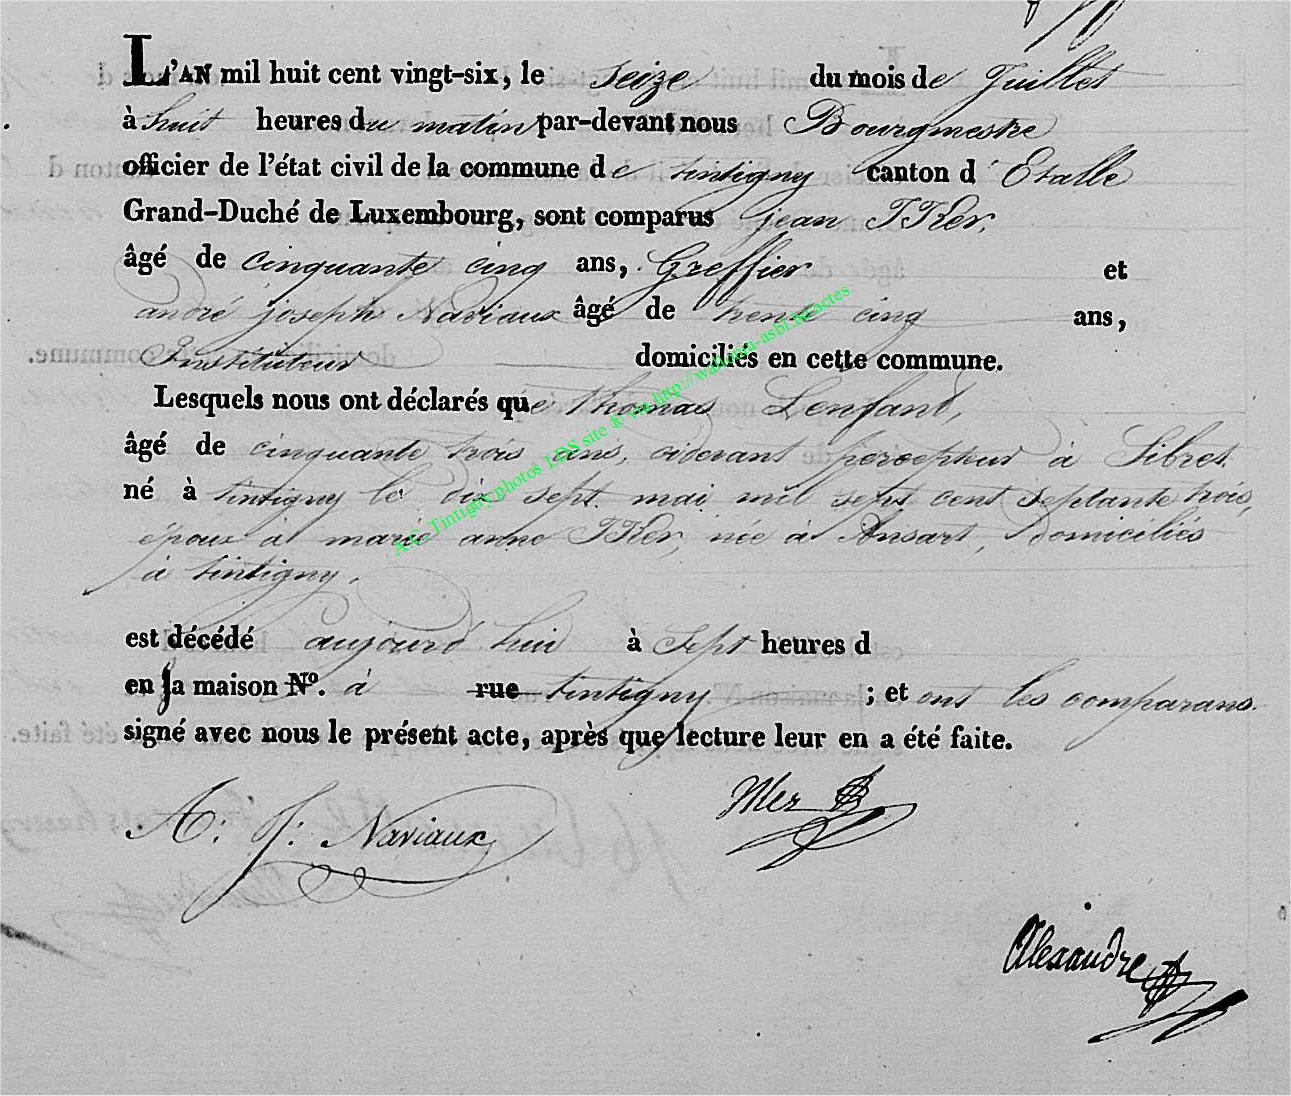 L'AN mil huit cent vingt-six, le seize du mois de Juillet
à huit heures du matin par-devant nous Bourgmestre
officier de l'état civil de la commune de tintigny canton d'Etalle
Grand-Duché de Luxembourg, sont comparus jean
âgé de cinquante cinq ans, Greffier et
andré joseph Naviaux âgé de trente cinq ans,
Instituteur domiciliés en cette commune.
Lesquels nous ont déclarés que thomas Lenfant,
âgé de cinquante trois ans, cidevant percepteur à Sibret
né à tintigny le dix sept mai mil sept cent septante trois,
époux à marie anne née à Ansart, domiciliés
à tintigny.
est décédé aujourd'hui à Sept heures d
en la maison N°. à rue tintigny ; et ont les comparans
signé avec nous le présent acte, après que lecture leur en a été faite.
A: J: Naviaux
Alexandre
A.C. Tintigny photos LDS site ® via http://wallonia-asbl.be/actes